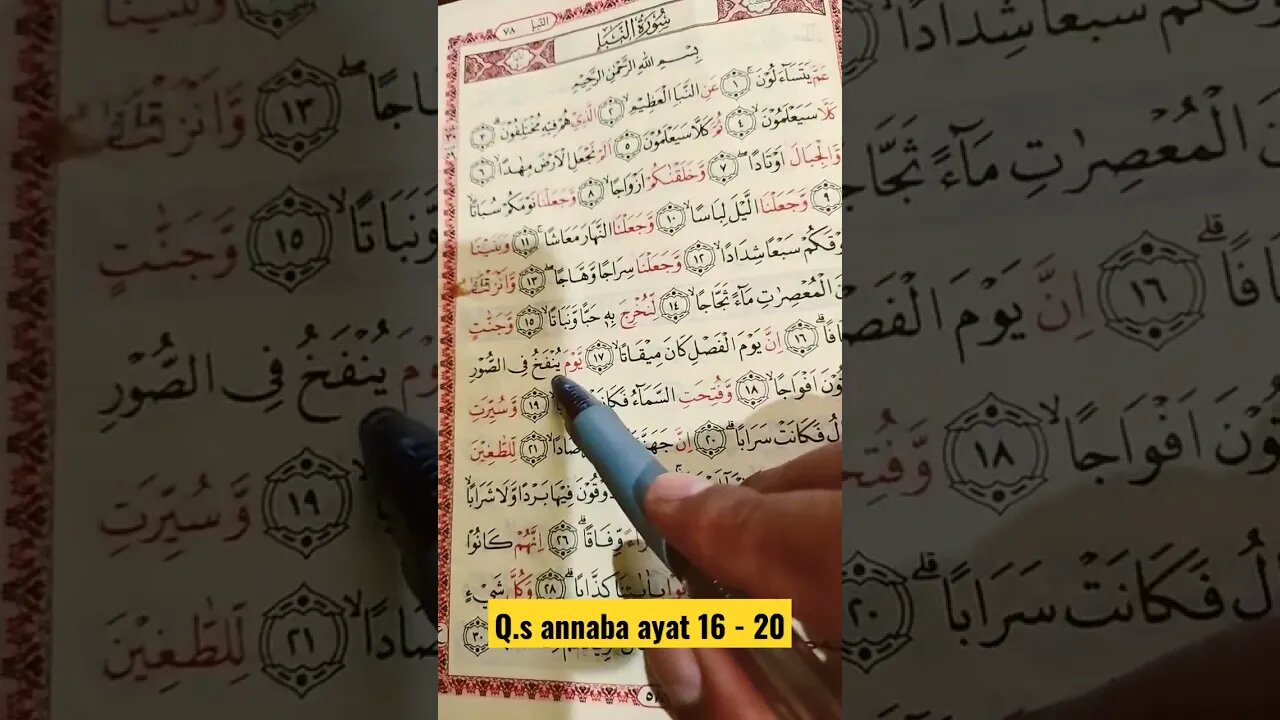 النبإ ٧٨
سُوْرَةُ النَّبَإِ
بِسْمِ اللّٰهِ الرَّحْمٰنِ الرَّحِيْمِ
عَمَّ يَتَسَاۤءَلُوْنَۚ ١ عَنِ النَّبَاِ الْعَظِيْمِۙ ٢ الَّذِيْ هُمْ فِيْهِ مُخْتَلِفُوْنَۗ ٣
كَلَّا سَيَعْلَمُوْنَۙ ٤ ثُمَّ كَلَّا سَيَعْلَمُوْنَ ٥ اَلَمْ نَجْعَلِ الْاَرْضَ مِهٰدًاۙ ٦
وَّالْجِبَالَ اَوْتَادًاۖ ٧ وَّخَلَقْنٰكُمْ اَزْوَاجًاۙ ٨ وَّجَعَلْنَا نَوْمَكُمْ سُبَاتًاۙ
٩ وَّجَعَلْنَا الَّيْلَ لِبَاسًاۙ ١٠ وَّجَعَلْنَا النَّهَارَ مَعَاشًاۚ ١١ وَبَنَيْنَا
فَوْقَكُمْ سَبْعًا شِدَادًاۙ ١٢ وَّجَعَلْنَا سِرَاجًا وَّهَّاجًاۖ ١٣ وَّاَنْزَلْنَا
الْمُعْصِرٰتِ مَاۤءً ثَجَّاجًاۙ ١٤ لِّنُخْرِجَ بِهٖ حَبًّا وَّنَبَاتًاۙ ١٥ وَّجَنّٰتٍ
١٦ اِنَّ يَوْمَ الْفَصْلِ كَانَ مِيْقَاتًاۙ ١٧ يَّوْمَ يُنْفَخُ فِى الصُّوْرِ
اَفْوَاجًاۙ ١٨ وَّفُتِحَتِ السَّمَاۤءُ ١٩ وَّسُيِّرَتِ
فَكَانَتْ سَرَابًاۗ ٢٠ اِنَّ ٢١ لِّلطّٰغِيْنَ
فِيْهَا بَرْدًا وَّلَا شَرَابًاۙ
وِّفَاقًاۗ ٢٦ اِنَّهُمْ كَانُوْا
كِذَّابًاۗ ٢٨ وَكُلَّ شَيْءٍ
٣٠
Q.s annaba ayat 16 - 20